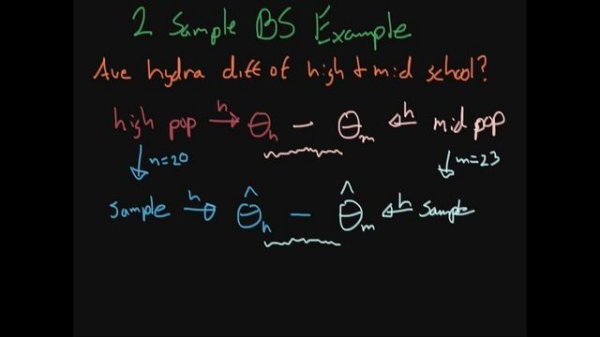 2 Sample BS Example
Ave hydra diff of high & mid school?
high pop h→ θh − θm ←h mid pop
↓ n=20 ↓ m=23
Sample h→ θ̂h − θ̂m ←h Sample